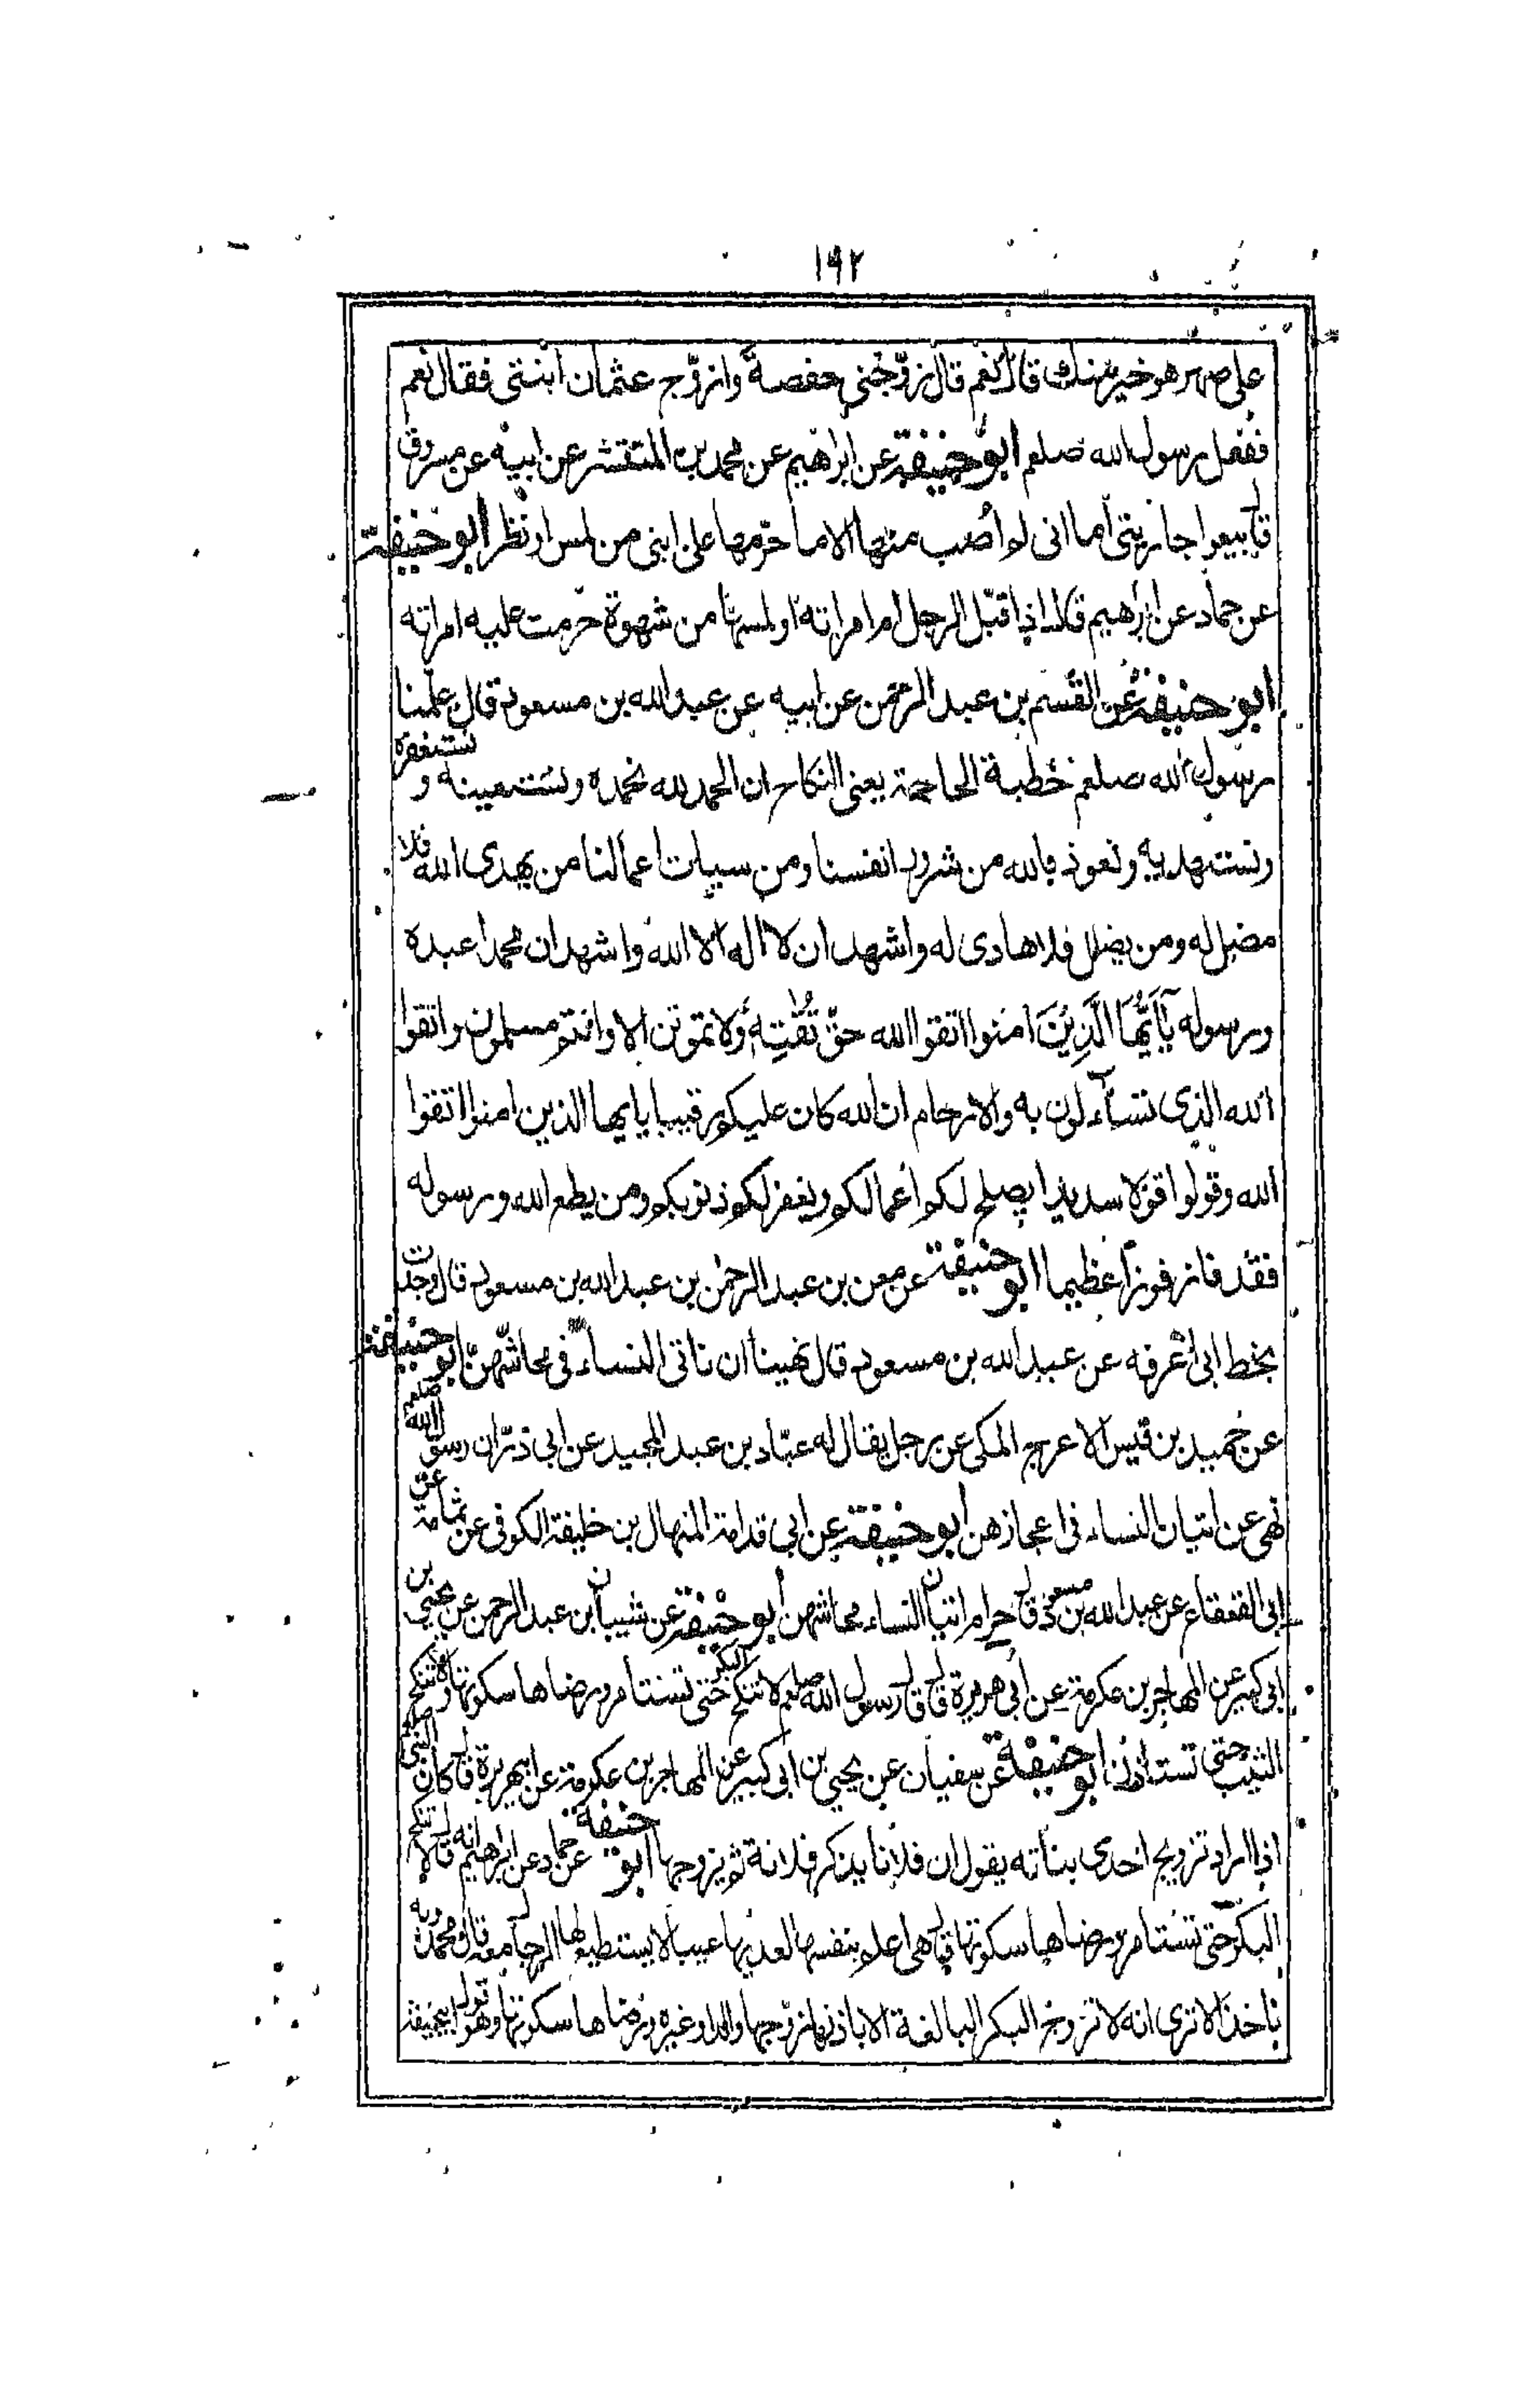 ١٩٢
على صهر هو خير منك قال نعم قال زوّجني حفصة وازوّج عثمان ابنتى فقال نعم
ففعل رسول الله صلعم ابو حنيفة عن ابراهيم عن محمد بن المنتشر عن ابيه عن مسروق
قال بيعوا جاريتى اما انى لو اصب منها الا ما حرّمها على ابنى من لمس او نظر ابو حنيفة
عن حماد عن ابرهيم قال اذا قبّل الرجل ام امراته او لمسها من شهوة حرّمت عليه امراته
ابو حنيفة عن القسم بن عبد الرحمن عن ابيه عن عبد الله بن مسعود قال علّمنا
رسول الله صلعم خطبة الحاجة يعنى النكاح ان الحمد لله نحمده ونستعينه و نستغفره
ونستهديه ونعوذ بالله من شرور انفسنا ومن سيات اعمالنا من يهدى الله فلا
مضل له ومن يضلل فلا هادى له واشهد ان لا اله الا الله واشهد ان محمدا عبده
ورسوله يَآ اَيُّهَا الَّذِيْنَ امنوا اتقوا الله حقّ تُقٰتِهٖ ولا تموتن الا وانتم مسلمون واتقوا
الله الذى تسآءلون به والارحام ان الله كان عليكم رقيبا يايها الذين امنوا اتقوا
الله وقولوا قولا سديدا يصلح لكم اعمالكم ويغفر لكم ذنوبكم ومن يطع الله ورسوله
فقد فاز فوزا عظيما ابو حنيفة عن معن بن عبد الرحمٰن بن عبد الله بن مسعود قال وجدت
بخط ابى اعرفه عن عبد الله بن مسعود قال نهينا ان ناتى النساء فى محاشّهنّ ابو حنيفة
عن حُميد بن قيس الاعرج المكى عن رجل يقال له عبّاد بن عبد المجيد عن ابى ذرّ ان رسول الله صلعم
نهى عن اتيان النساء فى اعجازهن ابو حنيفة عن ابى قدامة المنهال بن خليفة الكوفى عن ثمامة عن
ابى القعقاع عن عبد الله بن مسعود قال حرام اتيان النساء محاشهن ابو حنيفة عن شيبان بن عبد الرحمن عن يحيى بن
ابى كبير عن المهاجر بن عكرمة عن ابى هريرة قال قال رسول الله صلعم لا تنكح البكر حتى تستامر ورضاها سكوتها ولا تنكح
الثيب حتى تستاذن ابو حنيفة عن سفيان عن يحيى بن ابى كبير عن المهاجر بن عكرمة عن ابيهريرة قال كان النبى صلعم
اذا اراد تزويج احدى بناته يقول ان فلانا يذكر فلانة ثم يزوجها ابو حنيفة عن حماد عن ابراهيم انه قال لا تنكح
البكر حتى تستامر ورضاها سكوتها قال هى اعلم بنفسها لعل بها عيبا لا يستطيع لها الرجال معه قال محمد وبه
ناخذ الا ترى انه لا تزوج البكر البالغة الا باذنها زوّجها والد او غيره ورضاها سكوتها وهو قول ابيحنيفة